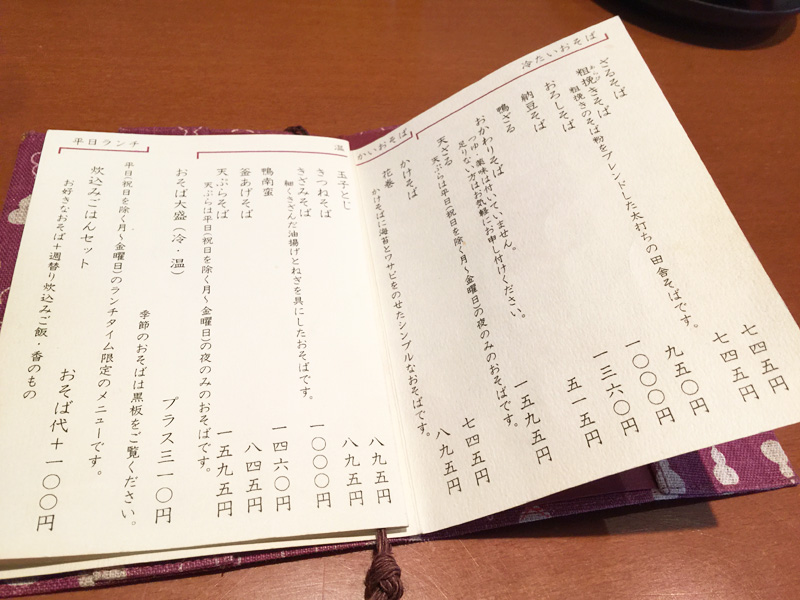 冷たいおそば
ざるそば 七四五円
粗挽きそば 七四五円
粗挽きのそば粉をブレンドした太打ちの田舎そばです。
おろしそば 九五〇円
納豆そば 一〇〇〇円
鴨ざる 一三六〇円
おかわりそば 五一五円
つゆ・薬味は付いていません。
足りない方はお気軽にお申し付けください。
天ざる 一五九五円
天ぷらは平日(祝日を除く月〜金曜日)の夜のみのおそばです。
温かいおそば
かけそば 七四五円
花巻 八九五円
かけそばに海苔とワサビをのせたシンプルなおそばです。
玉子とじ 八九五円
きつねそば 八九五円
きざみそば 一〇〇〇円
細くきざんだ油揚げとねぎを具にしたおそばです。
鴨南蛮 一四六〇円
釜あげそば 八四五円
天ぷらそば 一五九五円
天ぷらは平日(祝日を除く月〜金曜日)の夜のみのおそばです。
おそば大盛(冷・温) プラス三一〇円
季節のおそばは黒板をご覧ください。
平日ランチ
平日(祝日を除く月〜金曜日)のランチタイム限定のメニューです。
炊込みごはんセット おそば代+一〇〇円
お好きなおそば+週替り炊込みご飯・香のもの